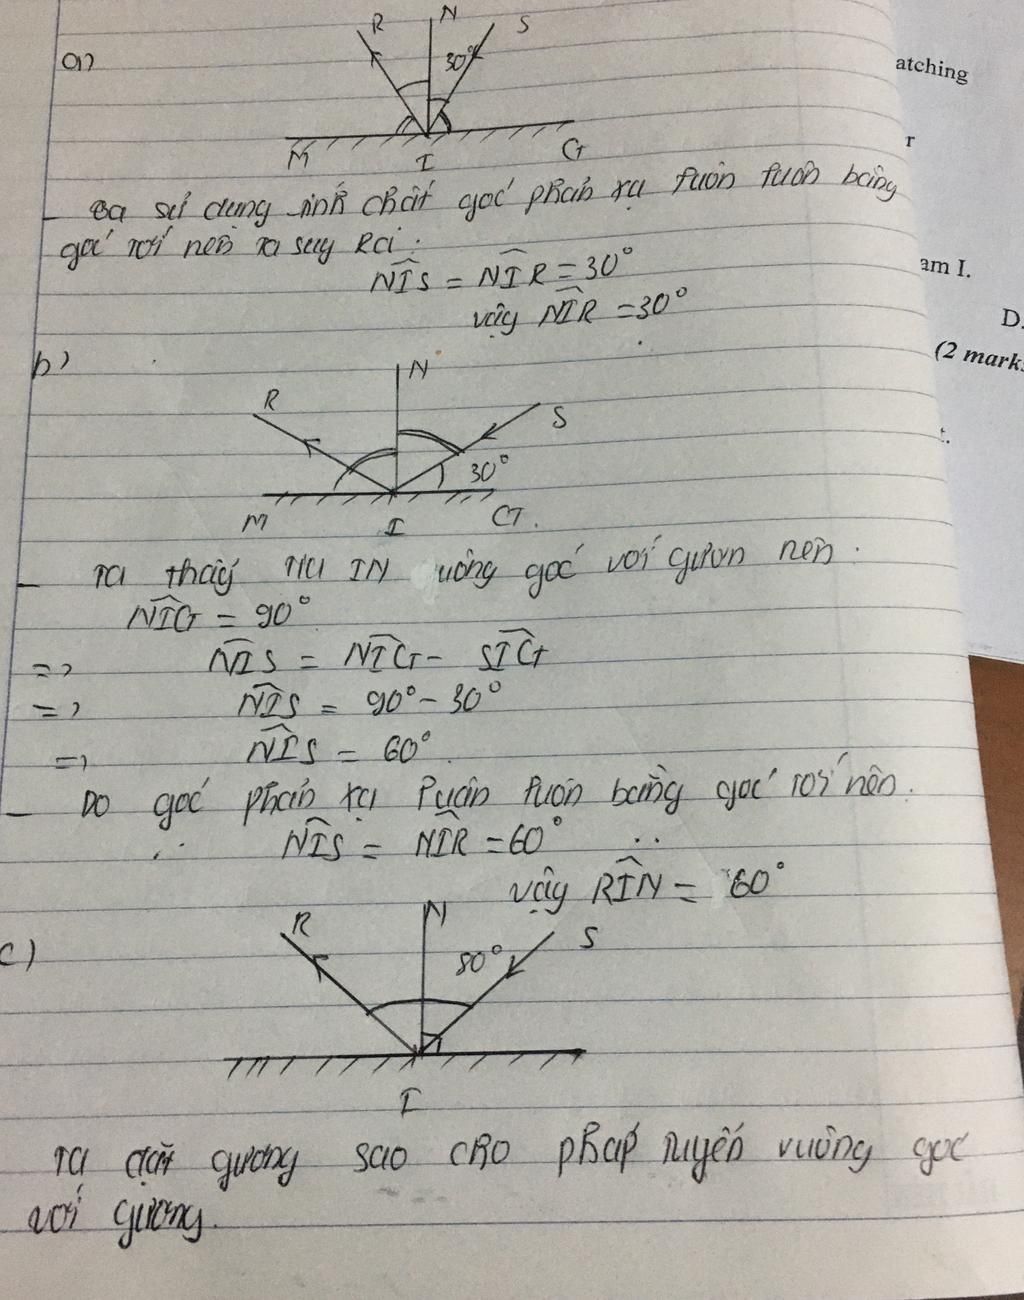 a)
R N S
30°
M I G
- Ta sử dụng tính chất góc phản xạ luôn luôn bằng
góc tới nên ta suy ra:
NIS = NIR = 30°
vậy NIR = 30°
b)
N
R
S
30°
M I G.
- Ta thấy tia IN vuông góc với gươn nên.
NIG = 90°
=> NIS = NIG - SIG
=> NIS = 90° - 30°
=> NIS = 60°.
- Do góc phản xạ luân luôn bằng góc tới nên.
NIS = NIR = 60°
vậy RIN = 60°
c)
R N S
80°
I
Ta đặt gương sao cho pháp tuyến vuông góc
với gương.
atching
r
am I.
D.
(2 mark
t.